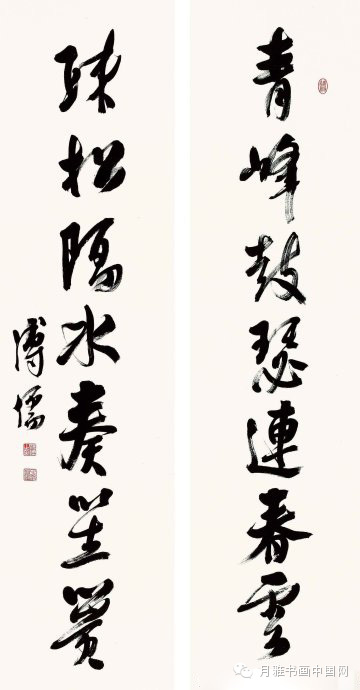 青峰鼓瑟連春雲
疎松隔水奏笙簧
溥儒
月雅书画中国网